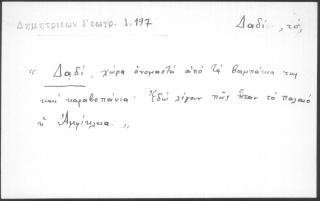 Δημητριέων Γεωγρ. 1.197
Δαδί , τό,
“ Δαδί, χώρα ὀνομαστή ἀπό τά βαμπάκια της
καί καραβοπάνια. Ἐδῶ λέγουν πῶς ἦταν τό παλαιό
ἡ Ἀμφίκλεια. „